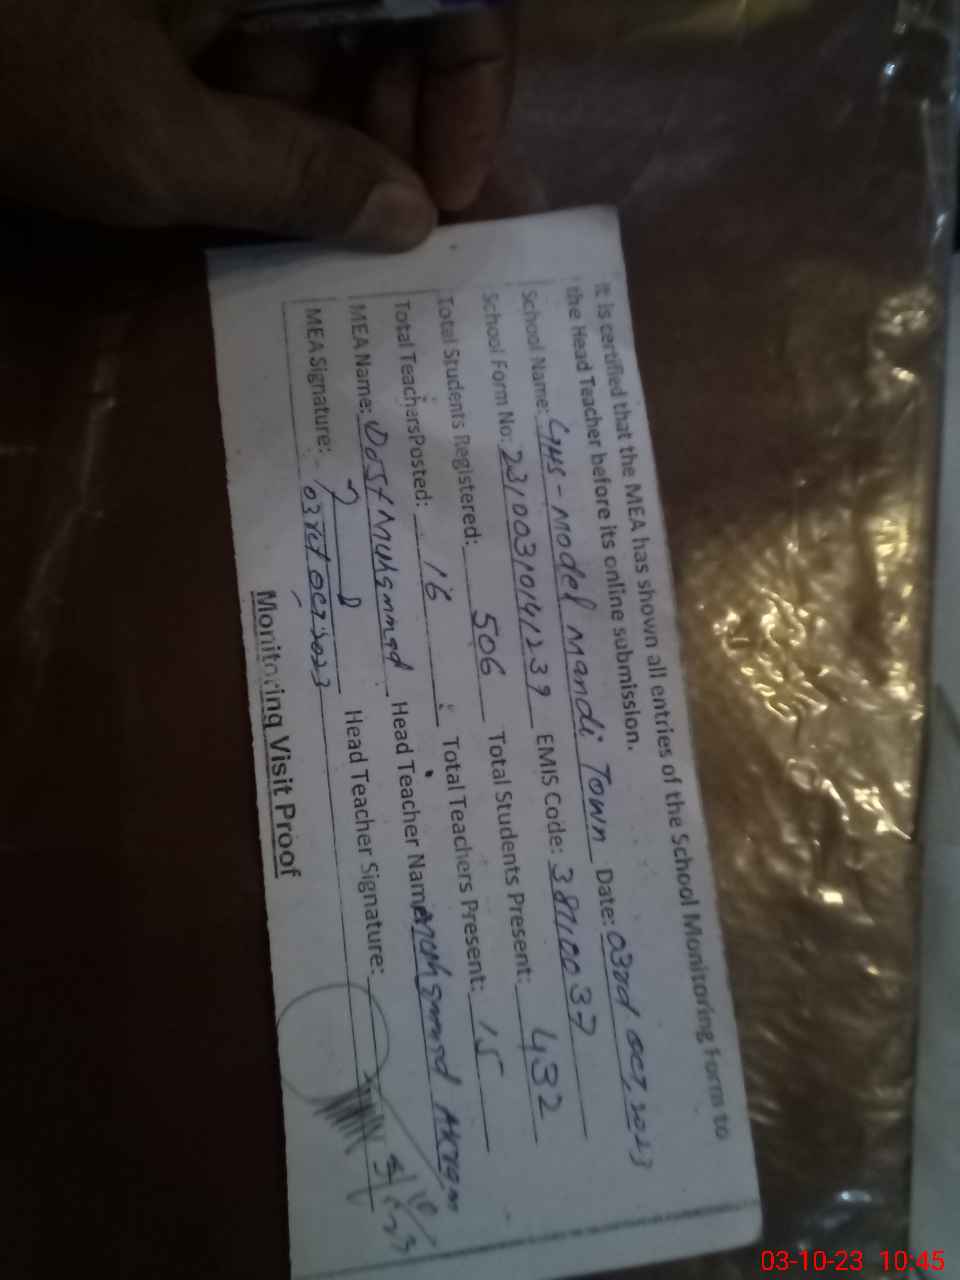 It is certified that the MEA has shown all entries of the School Monitoring Form to
the Head Teacher before its online submission.
School Name: GHS-Model Mandi Town Date: 03rd Oct, 2023
School Form No: 23100301411239 EMIS Code: 38110037
Total Students Registered: 506 Total Students Present: 432
Total Teachers Posted: 16 Total Teachers Present: 15
MEA Name: Dost Muhammad Head Teacher Name Muhammad Akram
MEA Signature: Head Teacher Signature:
03rd Oct 2023
Monitoring Visit Proof
03-10-23 10:45